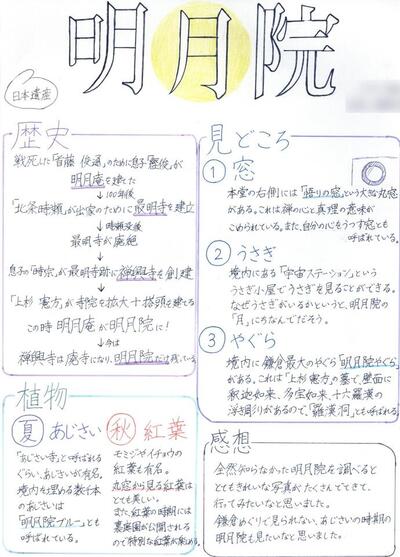 明月院
日本遺産
歴史
戦死した「首藤 俊通」のために息子「経俊」が
明月庵を建てた
↓100年後
「北条時頼」が出家のために最明寺を建立
↓時頼没後
最明寺が廃絶
↓
息子の「時宗」が最明寺跡に禅興寺を創建
↓
「上杉 憲方」が寺院を拡大+塔頭を建てる
この時 明月庵が明月院に!
↓今は
禅興寺は廃寺になり、明月院だけ残っている
見どころ
① 窓
本堂の右側には「悟りの窓」という大きな丸窓
がある。これは禅の心と真理の意味が
こめられている。また、自分の心をうつす窓とも
呼ばれている。
② うさぎ
境内にある「宇宙ステーション」という
うさぎ小屋でうさぎを見ることができる。
なぜうさぎがいるかというと、明月院の
「月」にちなんでだそう。
③ やぐら
境内に鎌倉最大のやぐら「明月院やぐら」
がある。これは「上杉 憲方」の墓で、壁面に
釈迦如来、多宝如来、十六羅漢の
浮彫りがあるので、「羅漢洞」とも呼ばれる
植物
夏 あじさい
「あじさい寺」と呼ばれる
ぐらい、あじさいが有名。
境内を埋める数千本
のあじさいは
「明月院ブルー」とも
呼ばれている。
秋 紅葉
モミジやイチョウの
紅葉も有名。
丸窓から見る紅葉は
とても美しい。
また紅葉の時期には
裏庭園が公開される
ので特別な紅葉が楽しめる。
感想
全然知らなかった明月院を調べると
とてもきれいな写真がたくさんでてきて、
行ってみたいなと思いました。
鎌倉めぐりで見られない、あじさいの時期の
明月院も見たいなと思いました。